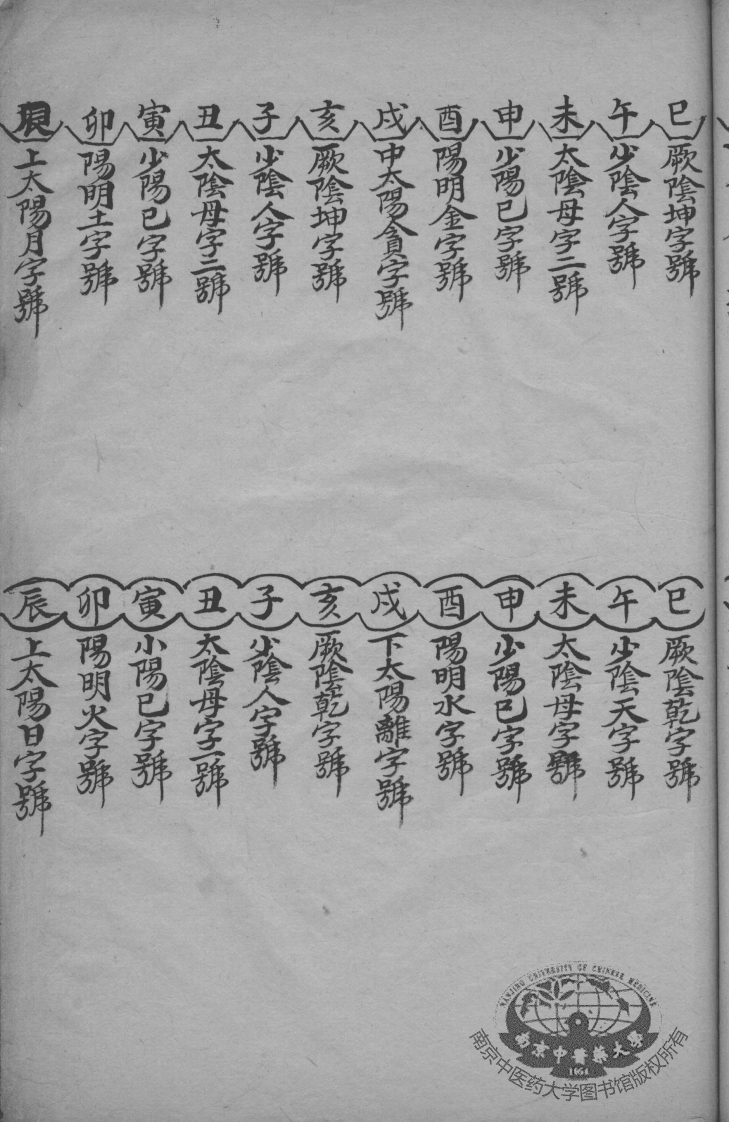 巳 厥陰坤字號
午 少陰人字號
未 太陰母字二號
申 少陽巳字號
酉 陽明金字號
戌 中太陽貪字號
亥 厥陰坤字號
子 少陰人字號
丑 太陰母字二號
寅 少陽巳字號
卯 陽明土字號
辰 上太陽月字號
巳 厥陰乾字號
午 少陰天字號
未 太陰母字號
申 少陽巳字號
酉 陽明水字號
戌 下太陽離字號
亥 厥陰乾字號
子 少陰人字號
丑 太陰母字一號
寅 小陽巳字號
卯 陽明火字號
辰 上太陽日字號
NANJING UNIVERSITY OF CHINESE MEDICINE
南京中醫藥大學
1954
南京中医药大学图书馆版权所有